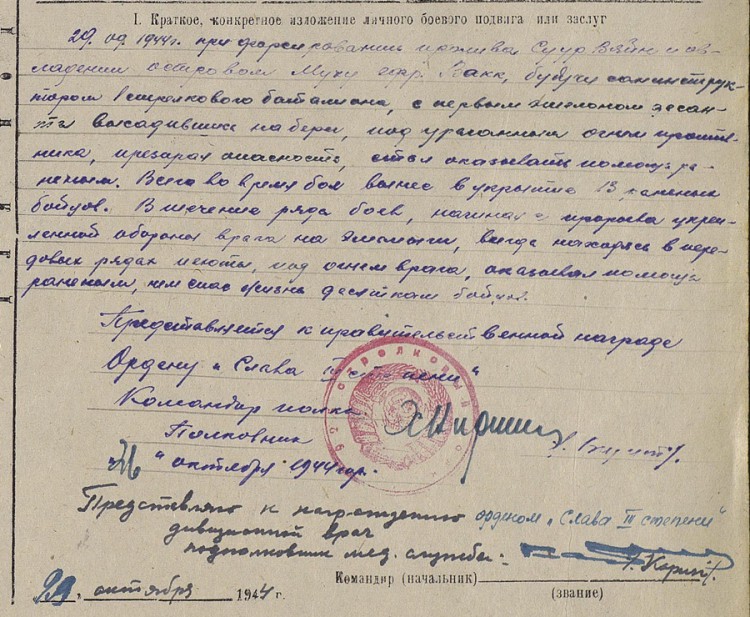 I. Краткое, конкретное изложение личного боевого подвига или заслуг
29.09.1944г. при форсировании пролива Суур Вяйн и ов-
ладении островом Муху ефр. Вакк, будучи санинструк-
тором 1 стрелкового баталиона, с первым эшелоном десан-
та высадившись на берег, под ураганным огнем против-
ника, презирая опасность, стал оказывать помощь ра-
неным. Всего во время боя вынес в укрытие 13 раненых
бойцов. В течение ряда боев, начиная с прорыва укреп-
ленной обороны врага на Эмайыги, всегда находясь в пере-
довых рядах пехоты, под огнем врага, оказывал помощь
раненым, чем спас жизнь десяткам бойцов.
Представляется к правительственной награде
Ордену "Слава III степени"
Командир полка
Полковник
" октября 1944 г.
Представляю к награждению орденом "Слава III степени"
дивизионный врач
подполковник мед. службы:
Командир (начальник)
(звание)
29 октября 1944 г.